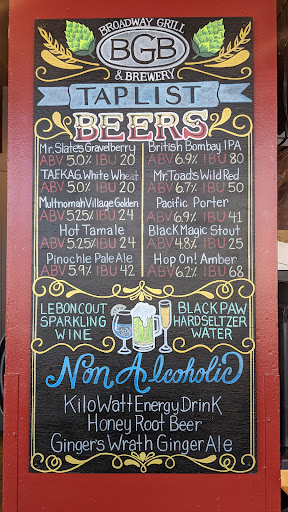 BROADWAY GRILL
BGB
& BREWERY
TAPLIST
BEERS
Mr. Slate's Gravelberry
ABV 5.0% IBU 20
TAEKAG. White Wheat
ABV 5.0% IBU 20
Multnomah Village Golden
ABV 5.25% IBU 24
Hot Tamale
ABV 5.25% IBU 24
Pinochle Pale Ale
ABV 5.9% IBU 42
British Bombay IPA
ABV 6.9% IBU 80
Mr. Toads Wild Red
ABV 6.7% IBU 50
Pacific Porter
ABV 6.9% IBU 41
Black Magic Stout
ABV 4.8% IBU 25
Hop On! Amber
ABV 6.2% IBU 68
LEBONCOUT
SPARKLING
WINE
BLACK PAW
HARDSELTZER
WATER
Non Alcoholic
KiloWatt Energy Drink
Honey Root Beer
Ginger's Wrath Ginger Ale